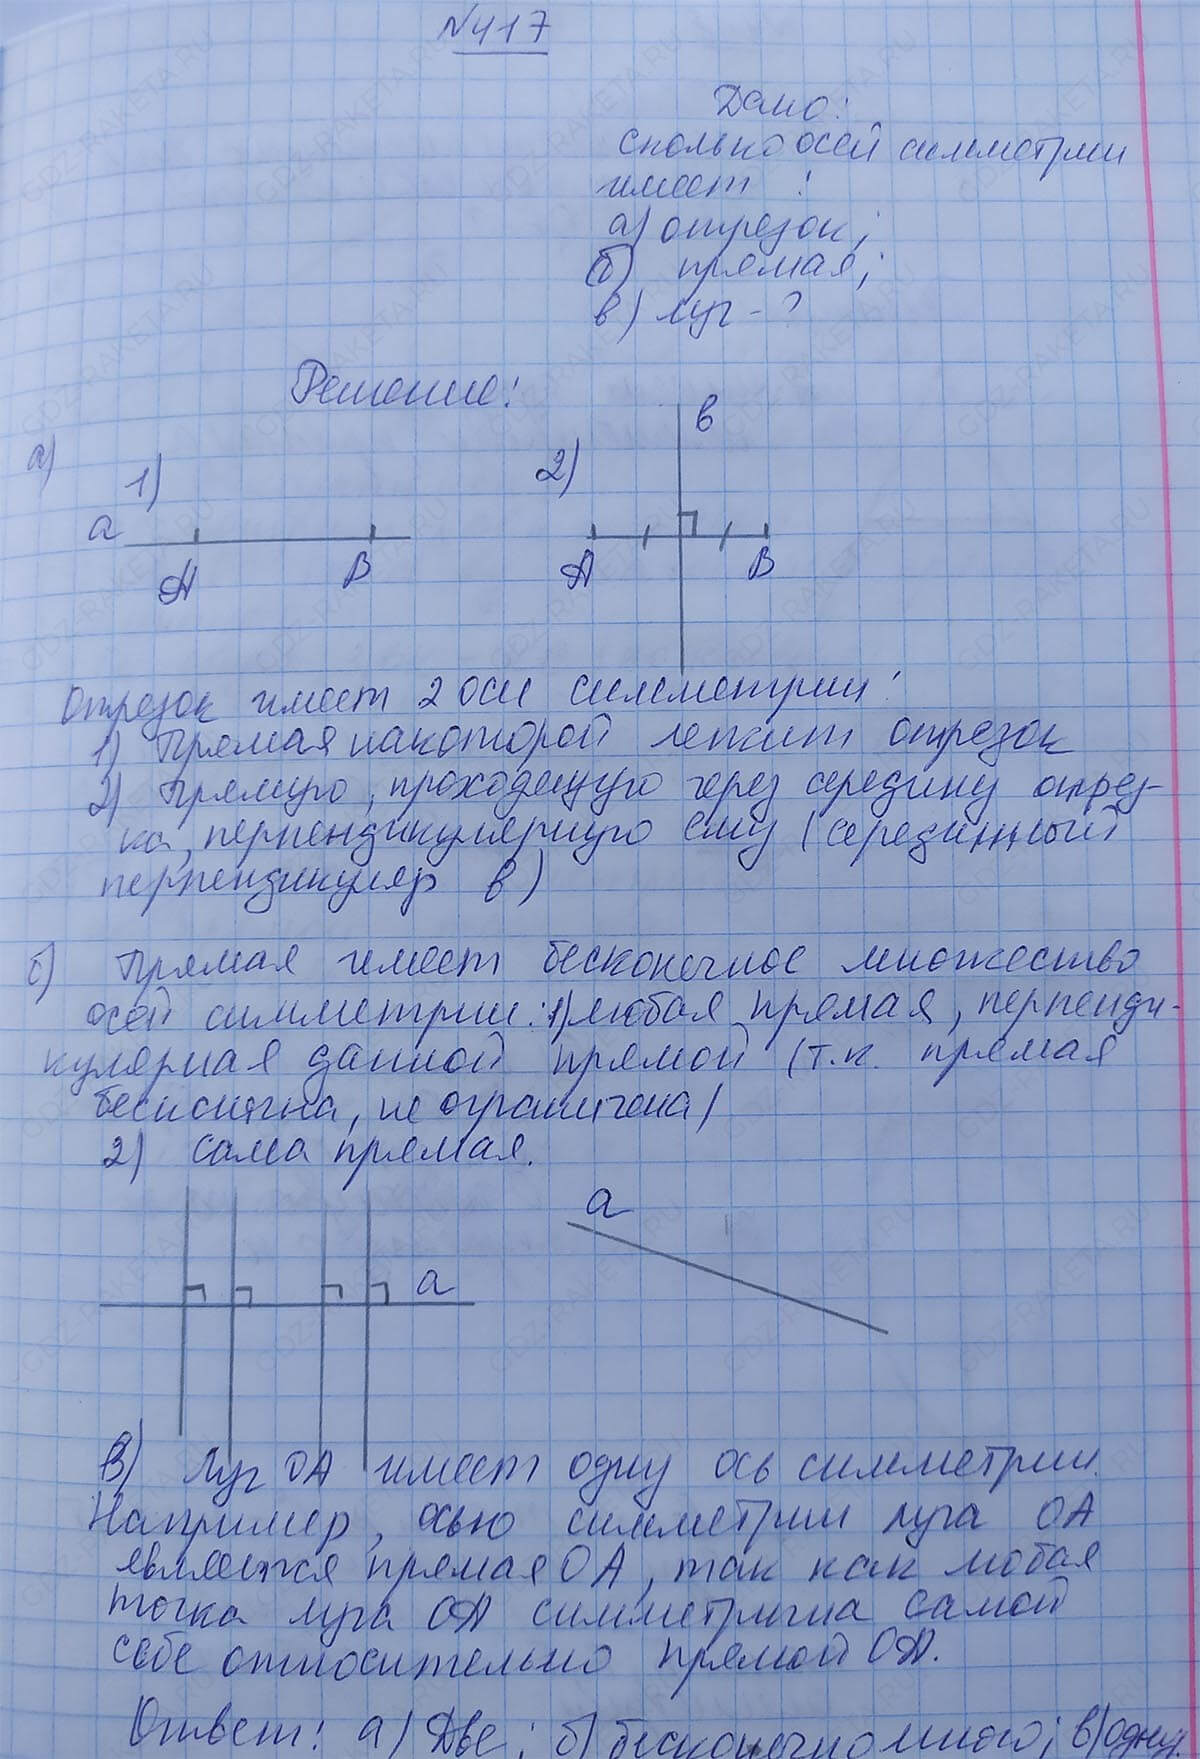 №417
Дано:
сколько осей симметрии
имеет:
а) отрезок;
б) прямая;
в) луч - ?
Решение:
а)
1)
а
А В
2)
в
А В
Отрезок имеет 2 оси симметрии:
1) Прямая на которой лежит отрезок
2) Прямую, проходящую через середину отрез-
ка, перпендикулярную ему (серединный
перпендикуляр в)
б) Прямая имеет бесконечное множество
осей симметрии: 1) любая прямая, перпенди-
кулярная данной прямой (т.к. прямая
бесконечна, не ограничена)
2) сама прямая.
а
а
в) Луч ОА имеет одну ось симметрии.
Например, осью симметрии луча ОА
является прямая ОА, так как любая
точка луча ОА симметрична самой
себе относительно прямой ОА.
Ответ: а) Две; б) бесконечно много; в) одну
GDZ-RAKETA.RU